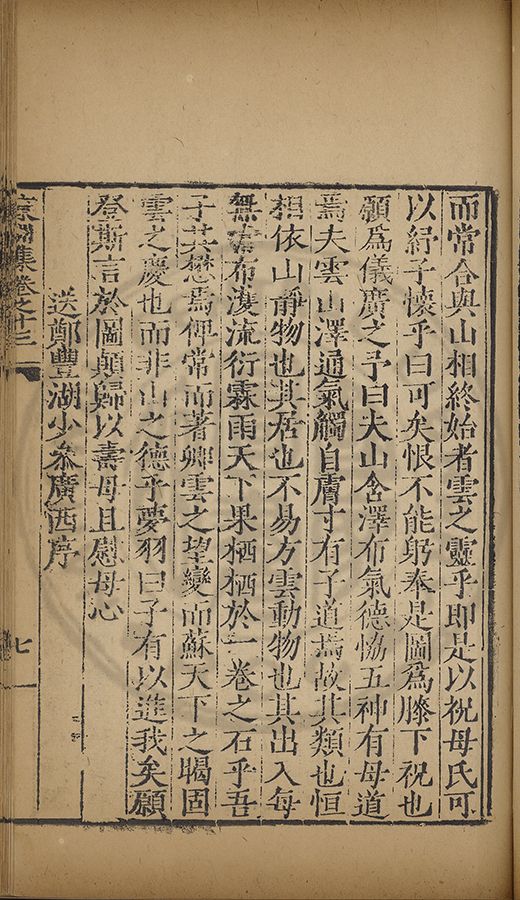 而常合與山相終始者雲之靈乎即是以祝母氏可
以紓子懷乎曰可矣恨不能躬奉是圖爲膝下祝也
願爲儀廣之予曰夫山含澤布氣德協五神有母道
焉夫雲山澤通氣觸自膚寸有子道焉故其類也恒
相依山靜物也其居也不易方雲動物也其出入每
無布濩流衍霖雨天下果栖栖於一卷之石乎吾
子其懋焉俾常而著卿雲之望變而蘇天下之暍固
雲之慶也而非山之德乎夢羽曰子有以進我矣願
登斯言於圖顛歸以壽母且慰母心
送鄭豐湖少叅廣西序
集卷之十三
七